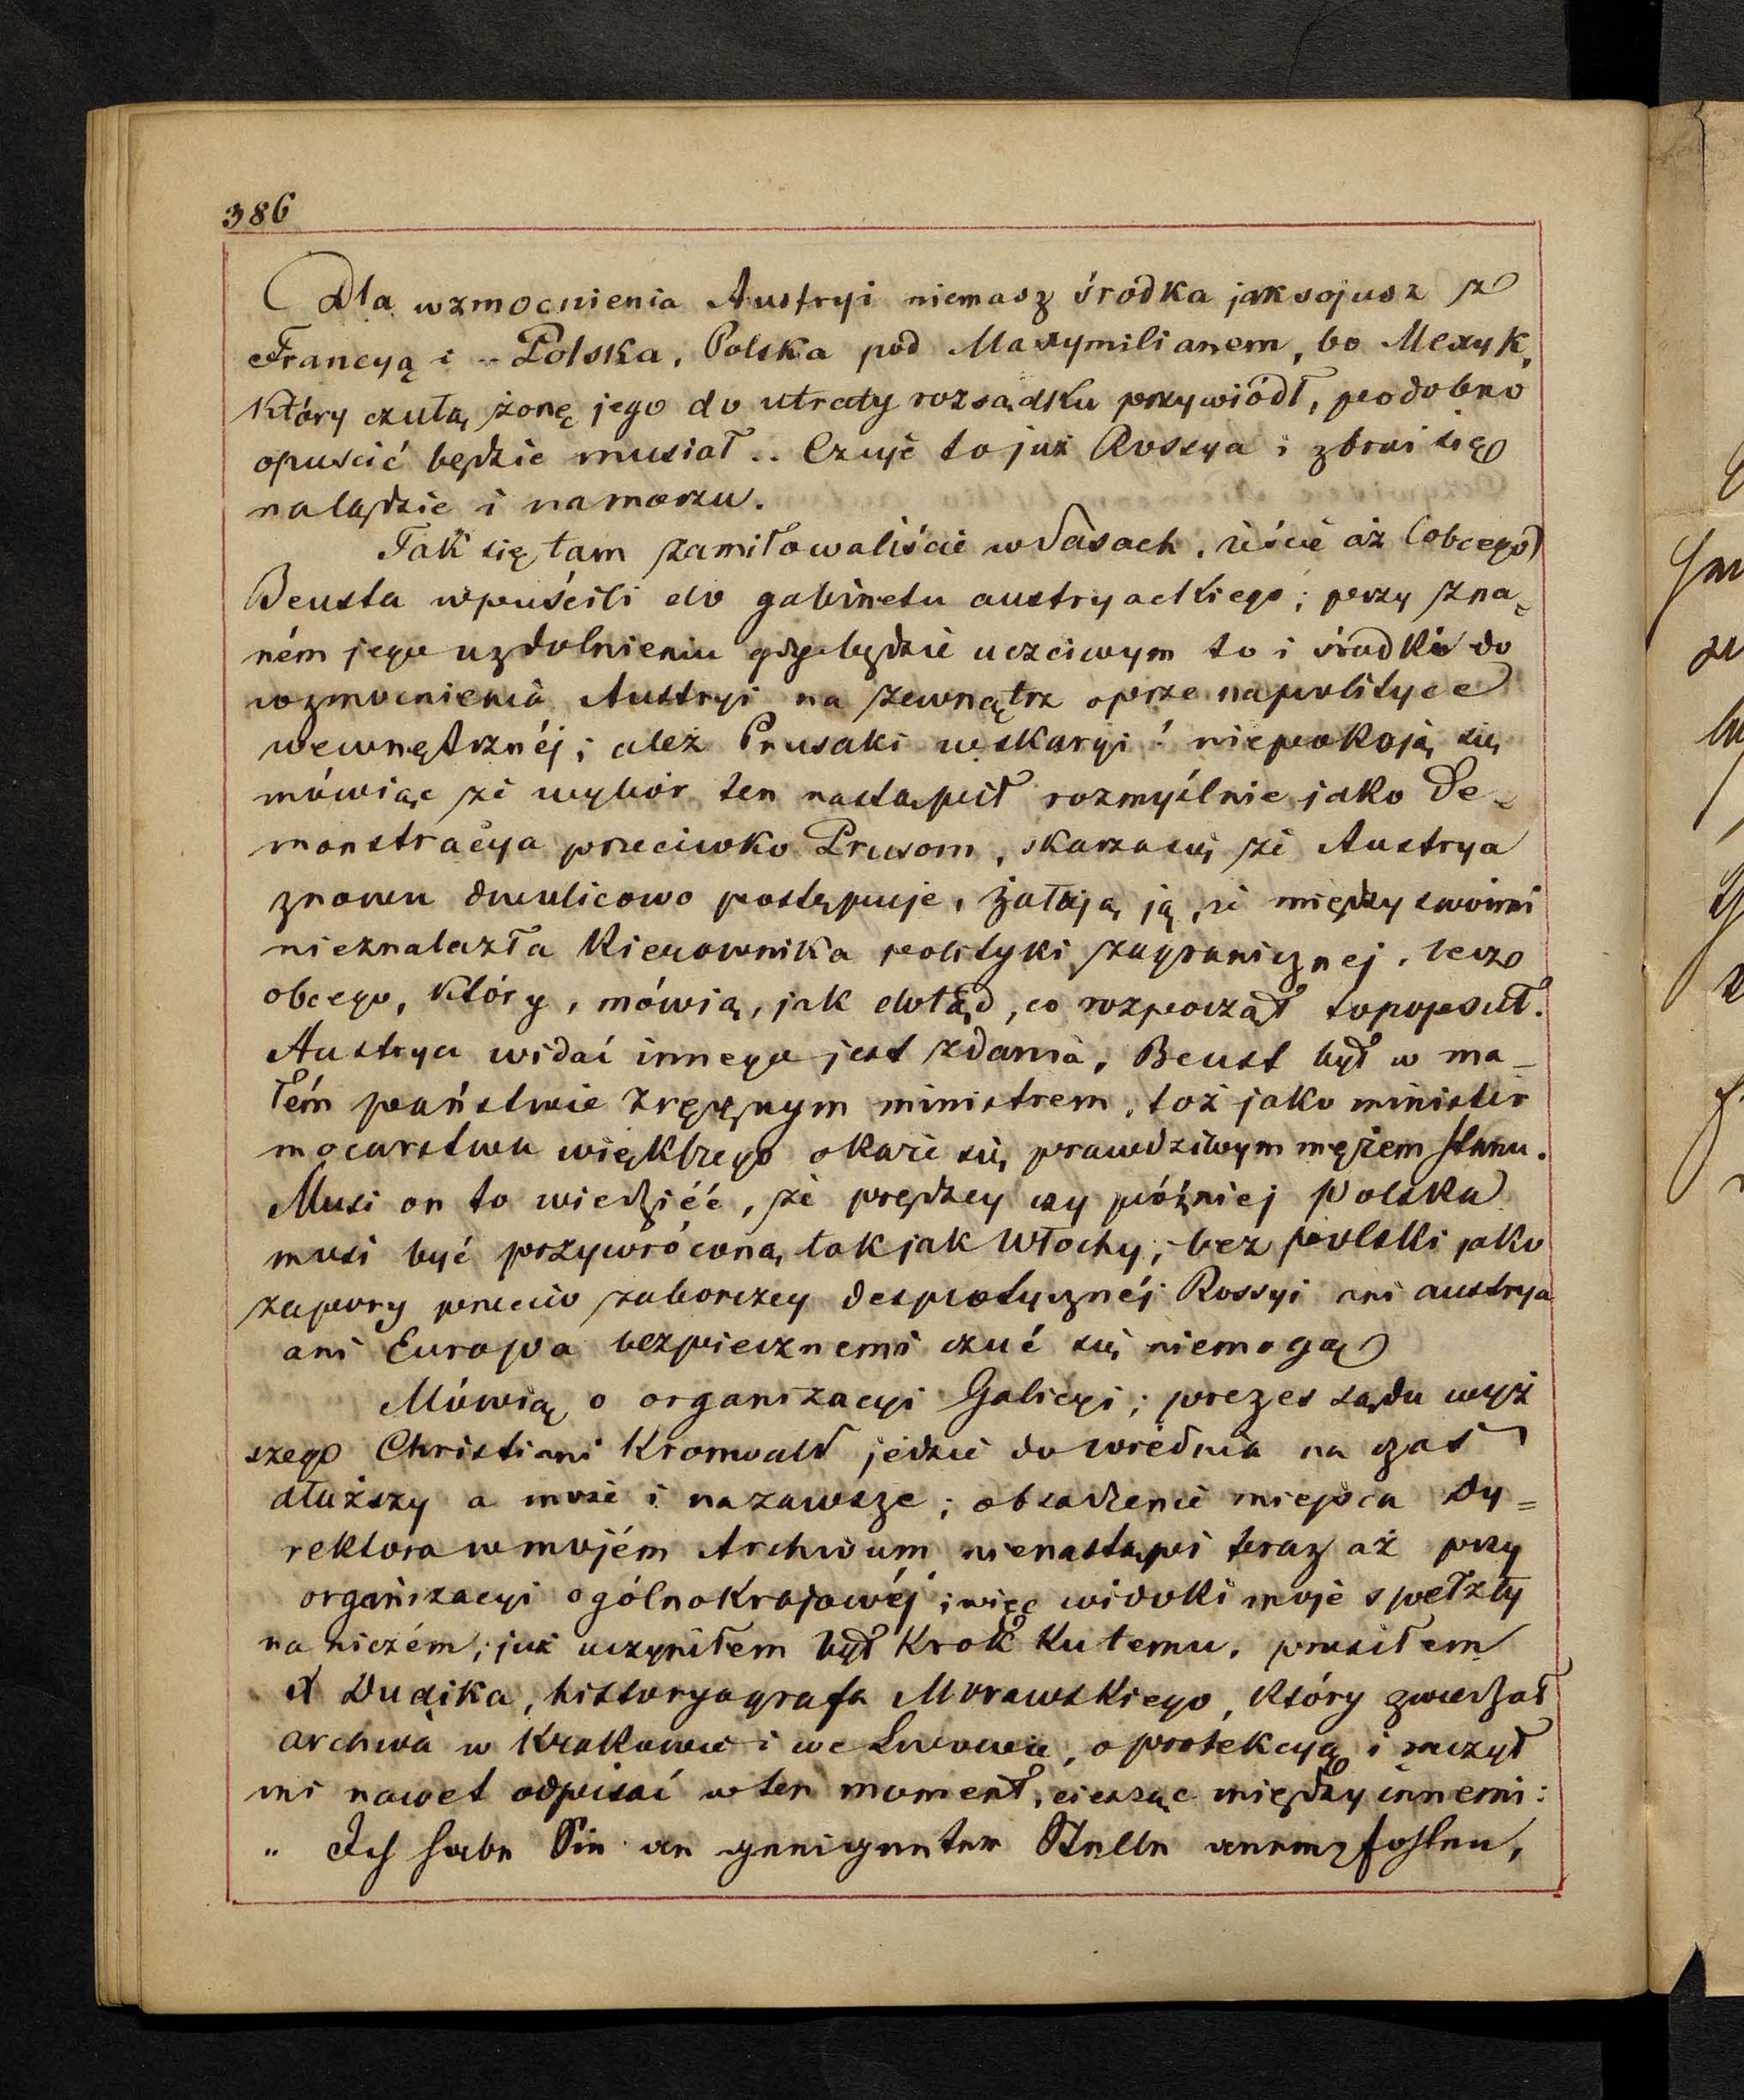 386
Dla wzmocnienia Austryi niemasz środka jak sojusz z
Francyą i - Polska, Polska pod Maxymilianem, bo Mexyk,
który czułą żonę jego do utraty rozsądku przywiódł, podobno
opuścić będzie musiał .. Czuje to już Rossya i zbroi się
na lądzie i na morzu.
Tak się tam zamiłowaliście w Sasach, żeście aż (obcego)
Beusta wpuścili do gabinetu austryackiego; przy zna-
ném jego uzdolnieniu gdy będzie uczciwym to i środki do
wzmocnienia Austryi na zewnątrz oprze na polityce
wewnętrznéj; aleź Prusaki w skargi! niepokoją się
mówiąc że wybór ten nastąpił rozmyślnie jako de-
monstracya przeciwko Prusom, skarżą się że Austrya
znowu dwulicowo postępuje, żałują ją, że między swoimi
nieznalazła kierownika polityki zagranicznej, lecz
obcego, który, mówią, jak dotąd, co rozpoczął to popsuł.
Austrya widać innego jest zdania, Beust był w ma-
łém państwie zręcznym ministrem, toż jako minister
mocarstwa większego okaże się prawdziwym mężem stanu.
Musi on to wiedzieć, że prędzey czy późniéj Polska
musi być przywróconą, tak jak Włochy; bez Polski jako
zapory przeciw zaborczey despotycznéj Rossyi ani austrya
ani Europa bezpiecznemi czuć się niemogą
Mówią o organizacyi Galicyi; prezes sądu wyż
szego Christiani Kronwald jedzie do Wiednia na czas
dłuższy a może i nazawsze; obsadzenie miejsca Dy=
rektora w mojém Archiwum nienastąpi teraz aż przy
organizacyi ogólnokrajowéj; więc widoki moje spełzły
na niczém; już uczyniłem był krok ku temu, prosiłem
X Dudika, historyografa Morawskiego, który zwiedzał
archiwa w Krakowie i we Lwowie, o protekcyą i raczył
mi nawet odpisać w ten moment, ciesząc między innemi:
„ Ich habe Sie an geeigneter Stelle anempfohlen,